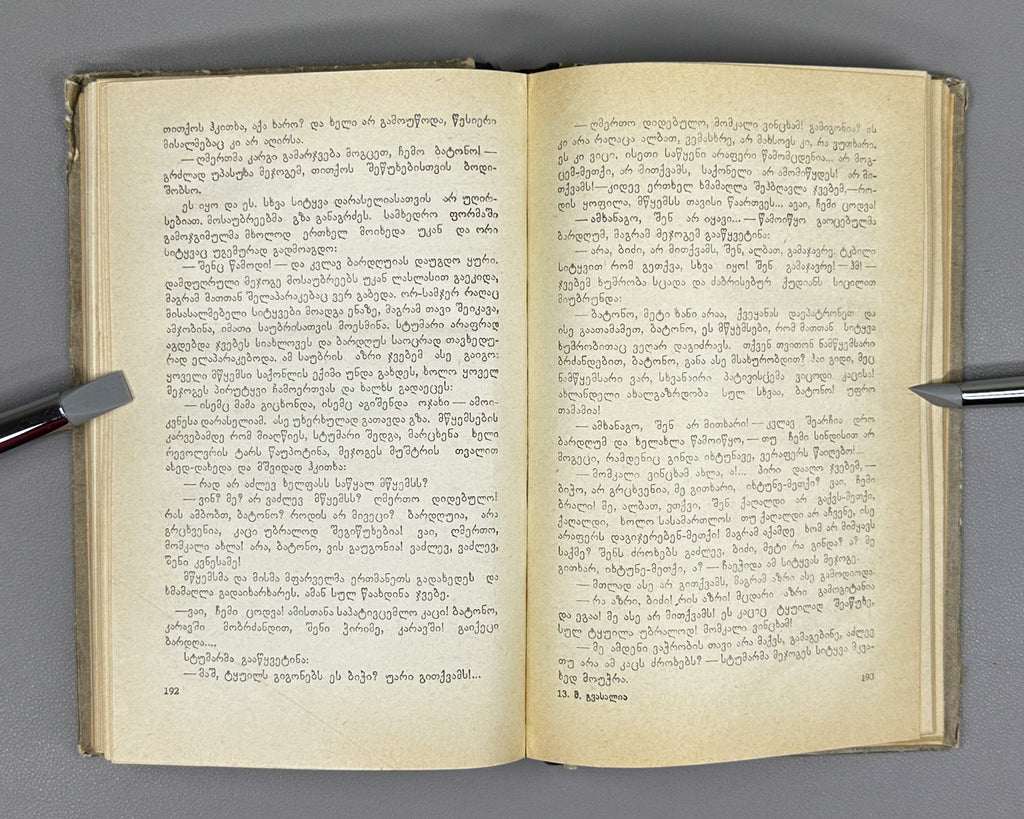 თითქოს ჰკითხა, აქა ხარო? და ხელი არ გამოუწოდა, წესიერი
მისალმებაც კი არ აღირსა.
— ღმერთმა კარგი გამარჯვება მოგცეთ, ჩემო ბატონო! —
გრძლად უპასუხა მეჯოგემ, თითქოს შეწუხებისთვის ბოდი-
შობსო.
ეს იყო და ეს. სხვა სიტყვა დარასელიასათვის არ უღირ-
სებიათ. მოსაუბრეებმა გზა განაგრძეს. სამხედრო ფორმაში
გამოჯგიმულმა მხოლოდ ერთხელ მოიხედა უკან და ორი
სიტყვაც უგემურად გადმოაგდო:
— შენც წამოდი! — და კვლავ ბარდღუიას დაუგდო ყური.
დამდუღრული მეჯოგე მოსაუბრეებს უკან ლასლასით გაეკიდა,
მაგრამ მათთან შელაპარაკებაც ვერ გაბედა. ორ-სამჯერ რაღაც
მისასალმებელი სიტყვები მოადგა ენაზე, მაგრამ თავი შეიკავა,
ამჯობინა, იმათი საუბრისათვის მოესმინა. სტუმარი არაფრად
აგდებდა ჯვებეს სიახლოვეს და ბარდღუს საოცრად თავხედუ-
რად ელაპარაკებოდა. ამ საუბრის აზრი ჯვებემ ასე გაიგო:
ყოველი მწყემსი საქონლის ექიმი უნდა გახდეს, ხოლო ყოველ
მეჯოგეს პირუტყვი ჩამოერთვას და ხალხს გადაეცეს:
— ისემც მამა გიცხონდა, ისემც აგიშენდა ოჯახი — ამოი-
კვნესა დარასელიამ. ასე უხერხულად გათავდა გზა. მწყემსების
კარვებამდე რომ მიაღწიეს, სტუმარი შედგა, მარცხენა ხელი
რევოლვრის ტარს წაუპოტინა, მეჯოგეს მუშტრის თვალით
ახედ-დახედა და მშვიდად ჰკითხა:
— რად არ აძლევ ხელფასს საწყალ მწყემსს?
— ვინ? მე? არ ვაძლევ მწყემსს? ღმერთო დიდებულო!
რას ამბობთ, ბატონო? როდის არ მივეცი? ბარდღუია, არა
გრცხვენია, კაცი უბრალოდ შეგიწუხებია! ვაი, ღმერთო,
მომკალი ახლა! არა, ბატონო, ვის გაუგონია! ვაძლევ, ვაძლევ,
შენი კვნესამე!
მწყემსმა და მისმა მფარველმა ერთმანეთს გადახედეს და
ხმამაღლა გადაიხარხარეს. ამან სულ წაახდინა ჯვებე.
— ვაი, ჩემი ცოდვა! ამისთანა საპატივცემლო კაცი! ბატონო,
კარავში მობრძანდით, შენი ჭირიმე, კარავში! გაიქეცი
ბარდღა....
სტუმარმა გააწყვეტინა:
— მაშ, ტყუილს გიგონებს ეს ბიჭი? უარი გითქვამს!...
192
— ღმერთო დიდებულო, მომკალი ვინცხამ! გამიგონია? ის
კი არა რაღაცა ალბათ, ვემასხრე, არ მახსოვს კი, რა ვუთხარი.
ეს კი ვიცი, ისეთი საწყენი არაფერი წამომცდენია... არ მოგ-
ცემ-მეთქი, არ მითქვამს, საქონელი არ ამომიწყდეს! არ მი-
თქვამს! — კიდევ ერთხელ ხმამაღლა შეჰბღავლა ჯვებემ, — რო-
დის ყოფილა, მწყემსს თავისი წაართვეს... ავაი, ჩემი ცოდვა!
— ამხანაგო, შენ არ იყავი... — წამოიწყო გაოცებულმა
ბარდღუმ, მაგრამ მეჯოგემ გააწყვეტინა:
— არა, ბიძი, არ მითქვამს, შენ, ალბათ, გამაჯავრე, ტკბილი
სიტყვით რომ გეთქვა, სხვა იყო! შენ გამაჯავრე! — ჰმ! —
ჯვებემ ხუმრობა სცადა და ძაბრისებურ ქუდიანს სიცილით
მიუბრუნდა:
— ბატონო, მეტი ხანი არაა, ქვეყანას დაეპატრონეთ და
ისე გაათამამეთ, ბატონო, ეს მწყემსები, რომ მათთან სიტყვა
ხუმრობითაც ვეღარ დაგიძრავს. თქვენ თვითონ ნამწყემსარი
ბრძანდებით, ბატონო, განა ასე მსახურობდით? გიდი, მეც
ნამწყემსარი ვარ, სხვანაირი პატივისცემა ვიცოდი კაცისა!
ახლანდელი ახალგაზრდობა სულ სხვაა, ბატონო! უფრო
თამამია!
— ამხანაგო, შენ არ მითხარი! — კვლავ შეარჩია დრო
ბარდღუმ და ხელახლა წამოიწყო, — თუ ჩემი სინდისით არ
მოგეცი, რამდენიც გინდა იხტუნავე, ვერაფერს წაიღებო!...
— მომკალი ვინცხამ ახლა, ა!... პირი დააღო ჯვებემ, —
ბიჭო, არ გრცხვენია, მე გითხარი, იხტუნე-მეთქი? ვაი, ჩემი
ბრალი! მე, ალბათ, ვთქვი, შენ ქაღალდი არ გაქვს-მეთქი,
ქაღალდი, ხოლო სასამართლოს თუ ქაღალდი არ აჩვენე, ისე
არაფერს დაგიჯერებენ-მეთქი! მაგრამ აქამდე ხომ არ მიმყავს
საქმე? შენს ძროხებს გაძლევ, ბიძი, მეტი რა გინდა? ა? მე
გითხარ, იხტუნე-მეთქი, ა? — ჩაეჭიდა ამ სიტყვას მეჯოგე.
— მთლად ასე არ გითქვამს, მაგრამ აზრი ასე გამოდიოდა.
— რა აზრი, ბიძი! რის აზრი! მცდარი აზრი გამოგიტანია
და ეგაა! მე ასე არ მითქვამს! ეს კაციც ტყუილად შეაწუხე,
სულ ტყუილა უბრალოდ! მომკალი ვინცხამ!
— მე ამდენი ვაჭრობის თავი არა მაქვს, გამაგებინე, აძლევ
თუ არა ამ კაცს ძროხებს? — სტუმარმა მეჯოგეს სიტყვა მკვა-
ხედ მოუჭრა.
13. მ. გვასალია
193